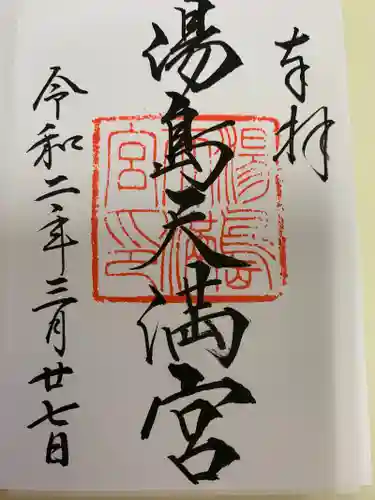 奉拝
湯島天満宮
令和二年三月廿七日
湯島天満宮印